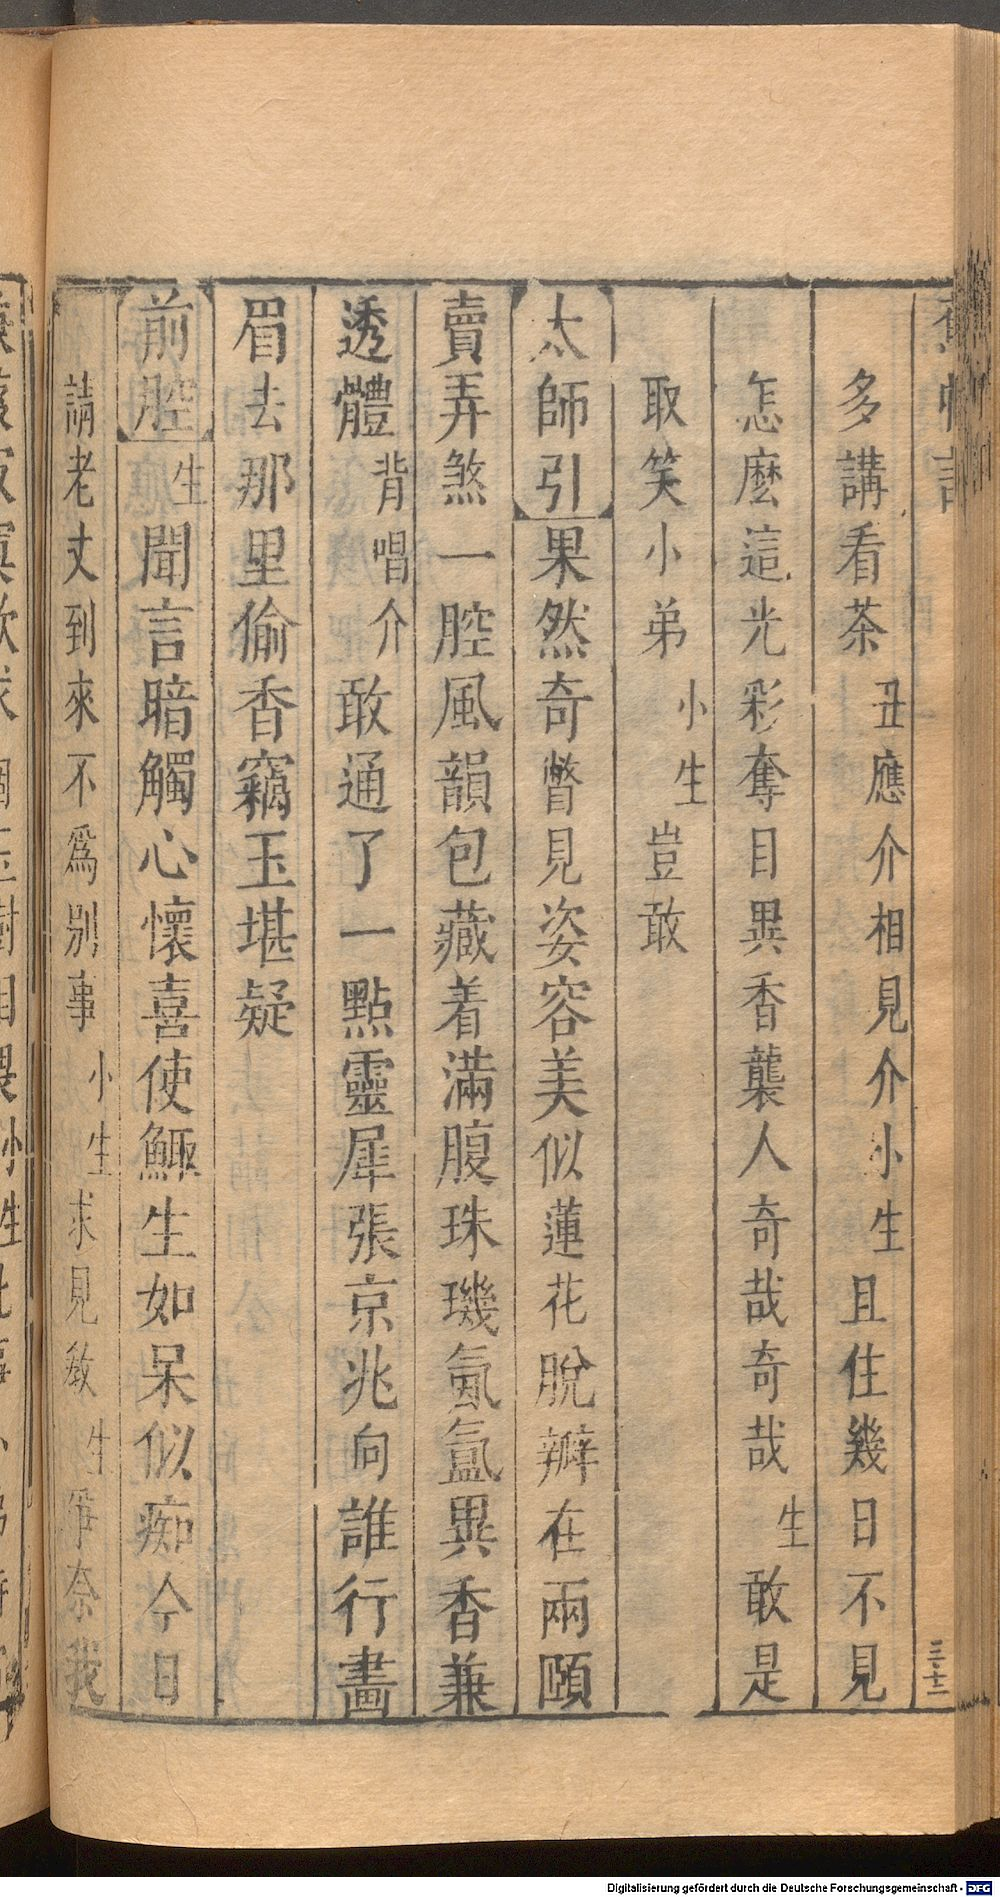 多講看茶丑應介相見介小生且住幾日不見
怎麽這光彩奪目異香襲人奇哉奇哉生敢是
取笑小弟小生豈敢
太師引果然奇瞥見姿容美似蓮花脫瓣在兩頤
賣弄煞一腔風韻包藏着滿腹珠璣氤氳異香兼
透體背唱介敢通了一點靈犀張京兆向誰行畫
眉去那里偷香竊玉堪疑
前腔生聞言暗觸心懷喜使鯫生如呆似痴今日
請老丈到來不爲別事小生求見教生爭奈我
三十二
Digitalisierung gefördert durch die Deutsche Forschungsgemeinschaft - DFG